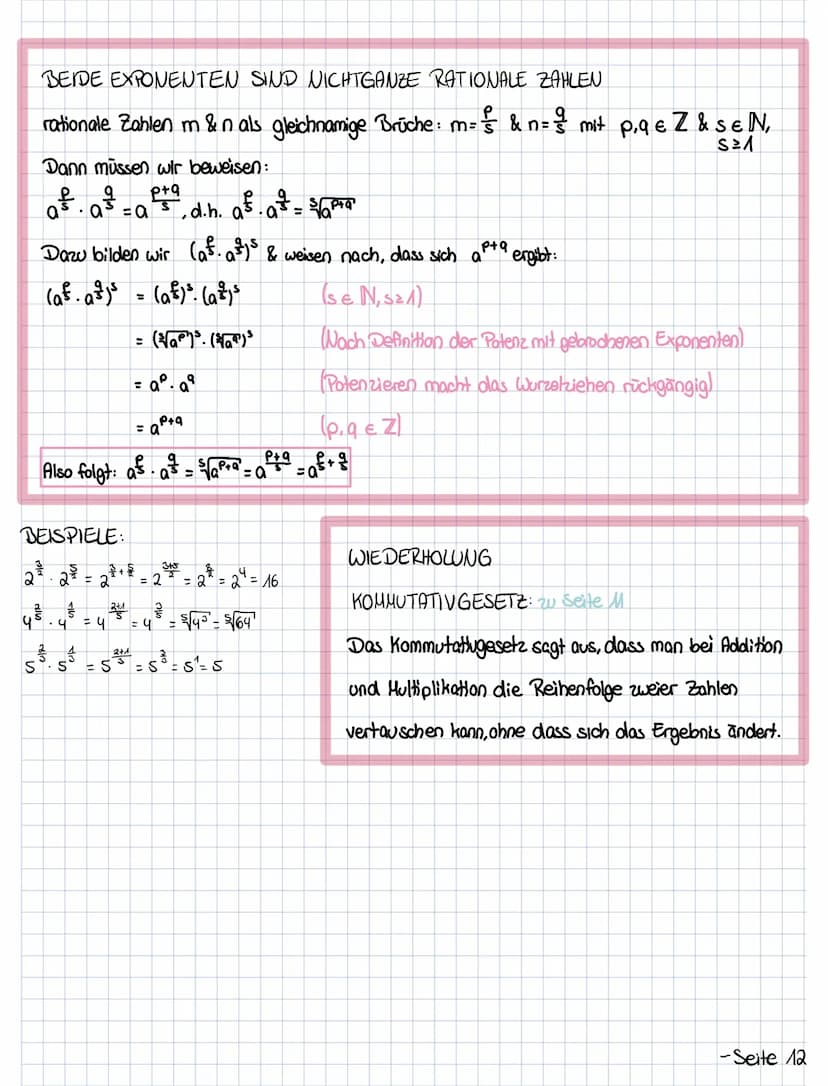 BEIDE EXPONENTEN SIND NICHTGANZE RATIONALE ZAHLEN
rationale Zahlen m & n als gleichnamige Brüche: m = p/s & n = q/s mit p,q ∈ ℤ & s ∈ ℕ,
s≥1
Dann müssen wir beweisen:
a^(p/s) · a^(q/s) = a^((p+q)/s), d.h. a^(p/s) · a^(q/s) = ˢ√(a^(p+q))
Dazu bilden wir (a^(p/s) · a^(q/s))^s & weisen nach, dass sich a^(p+q) ergibt:
(a^(p/s) · a^(q/s))^s = (a^(p/s))^s · (a^(q/s))^s (s ∈ ℕ, s≥1)
= (ˢ√(a^p))^s · (ˢ√(a^q))^s (Nach Definition der Potenz mit gebrochenen Exponenten)
= a^p · a^q (Potenzieren macht das Wurzelziehen rückgängig)
= a^(p+q) (p,q ∈ ℤ)
Also folgt: a^(p/s) · a^(q/s) = ˢ√(a^(p+q)) = a^((p+q)/s) = a^(p/s + q/s)
BEISPIELE:
2^(3/2) · 2^(5/2) = 2^(3/2 + 5/2) = 2^((3+5)/2) = 2^(8/2) = 2^4 = 16
4^(2/5) · 4^(1/5) = 4^((2+1)/5) = 4^(3/5) = ⁵√(4^3) = ⁵√64
5^(2/3) · 5^(1/3) = 5^((2+1)/3) = 5^(3/3) = 5^1 = 5
WIEDERHOLUNG
KOMMUTATIVGESETZ: zu Seite 11
Das Kommutativgesetz sagt aus, dass man bei Addition
und Multiplikation die Reihenfolge zweier Zahlen
vertauschen kann, ohne dass sich das Ergebnis ändert.
-Seite 12